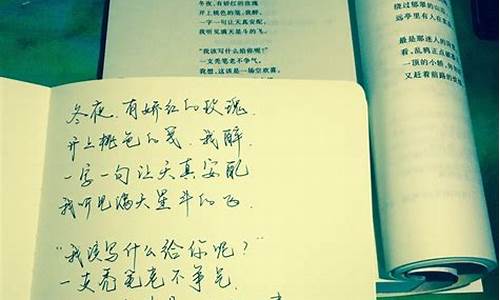 冬夜，有娇红的玫瑰
开上桃色的笺，我醉，
一字一句让天真安配，
我听见满天星斗的飞。
“我该写什么给你呢？”
一支秃笔老不争气，
我想，这该是一场空欢喜。
绕过郁翠的山
远亭里有人在
最是那迷人的
看，乱鸦正点破
一顶的小轿，
又赶着前路的
冬夜，有娇红的玫瑰
开上桃色的笺．我醉，
一字一句让天真安配
我听见满天星斗的飞
“我该写什么给你呢？”
一支秃笔老不争气